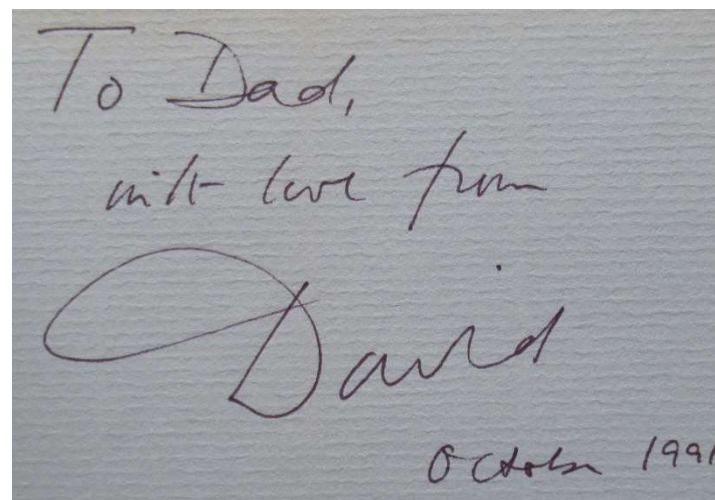 To Dad,
with love from
David
October 1991